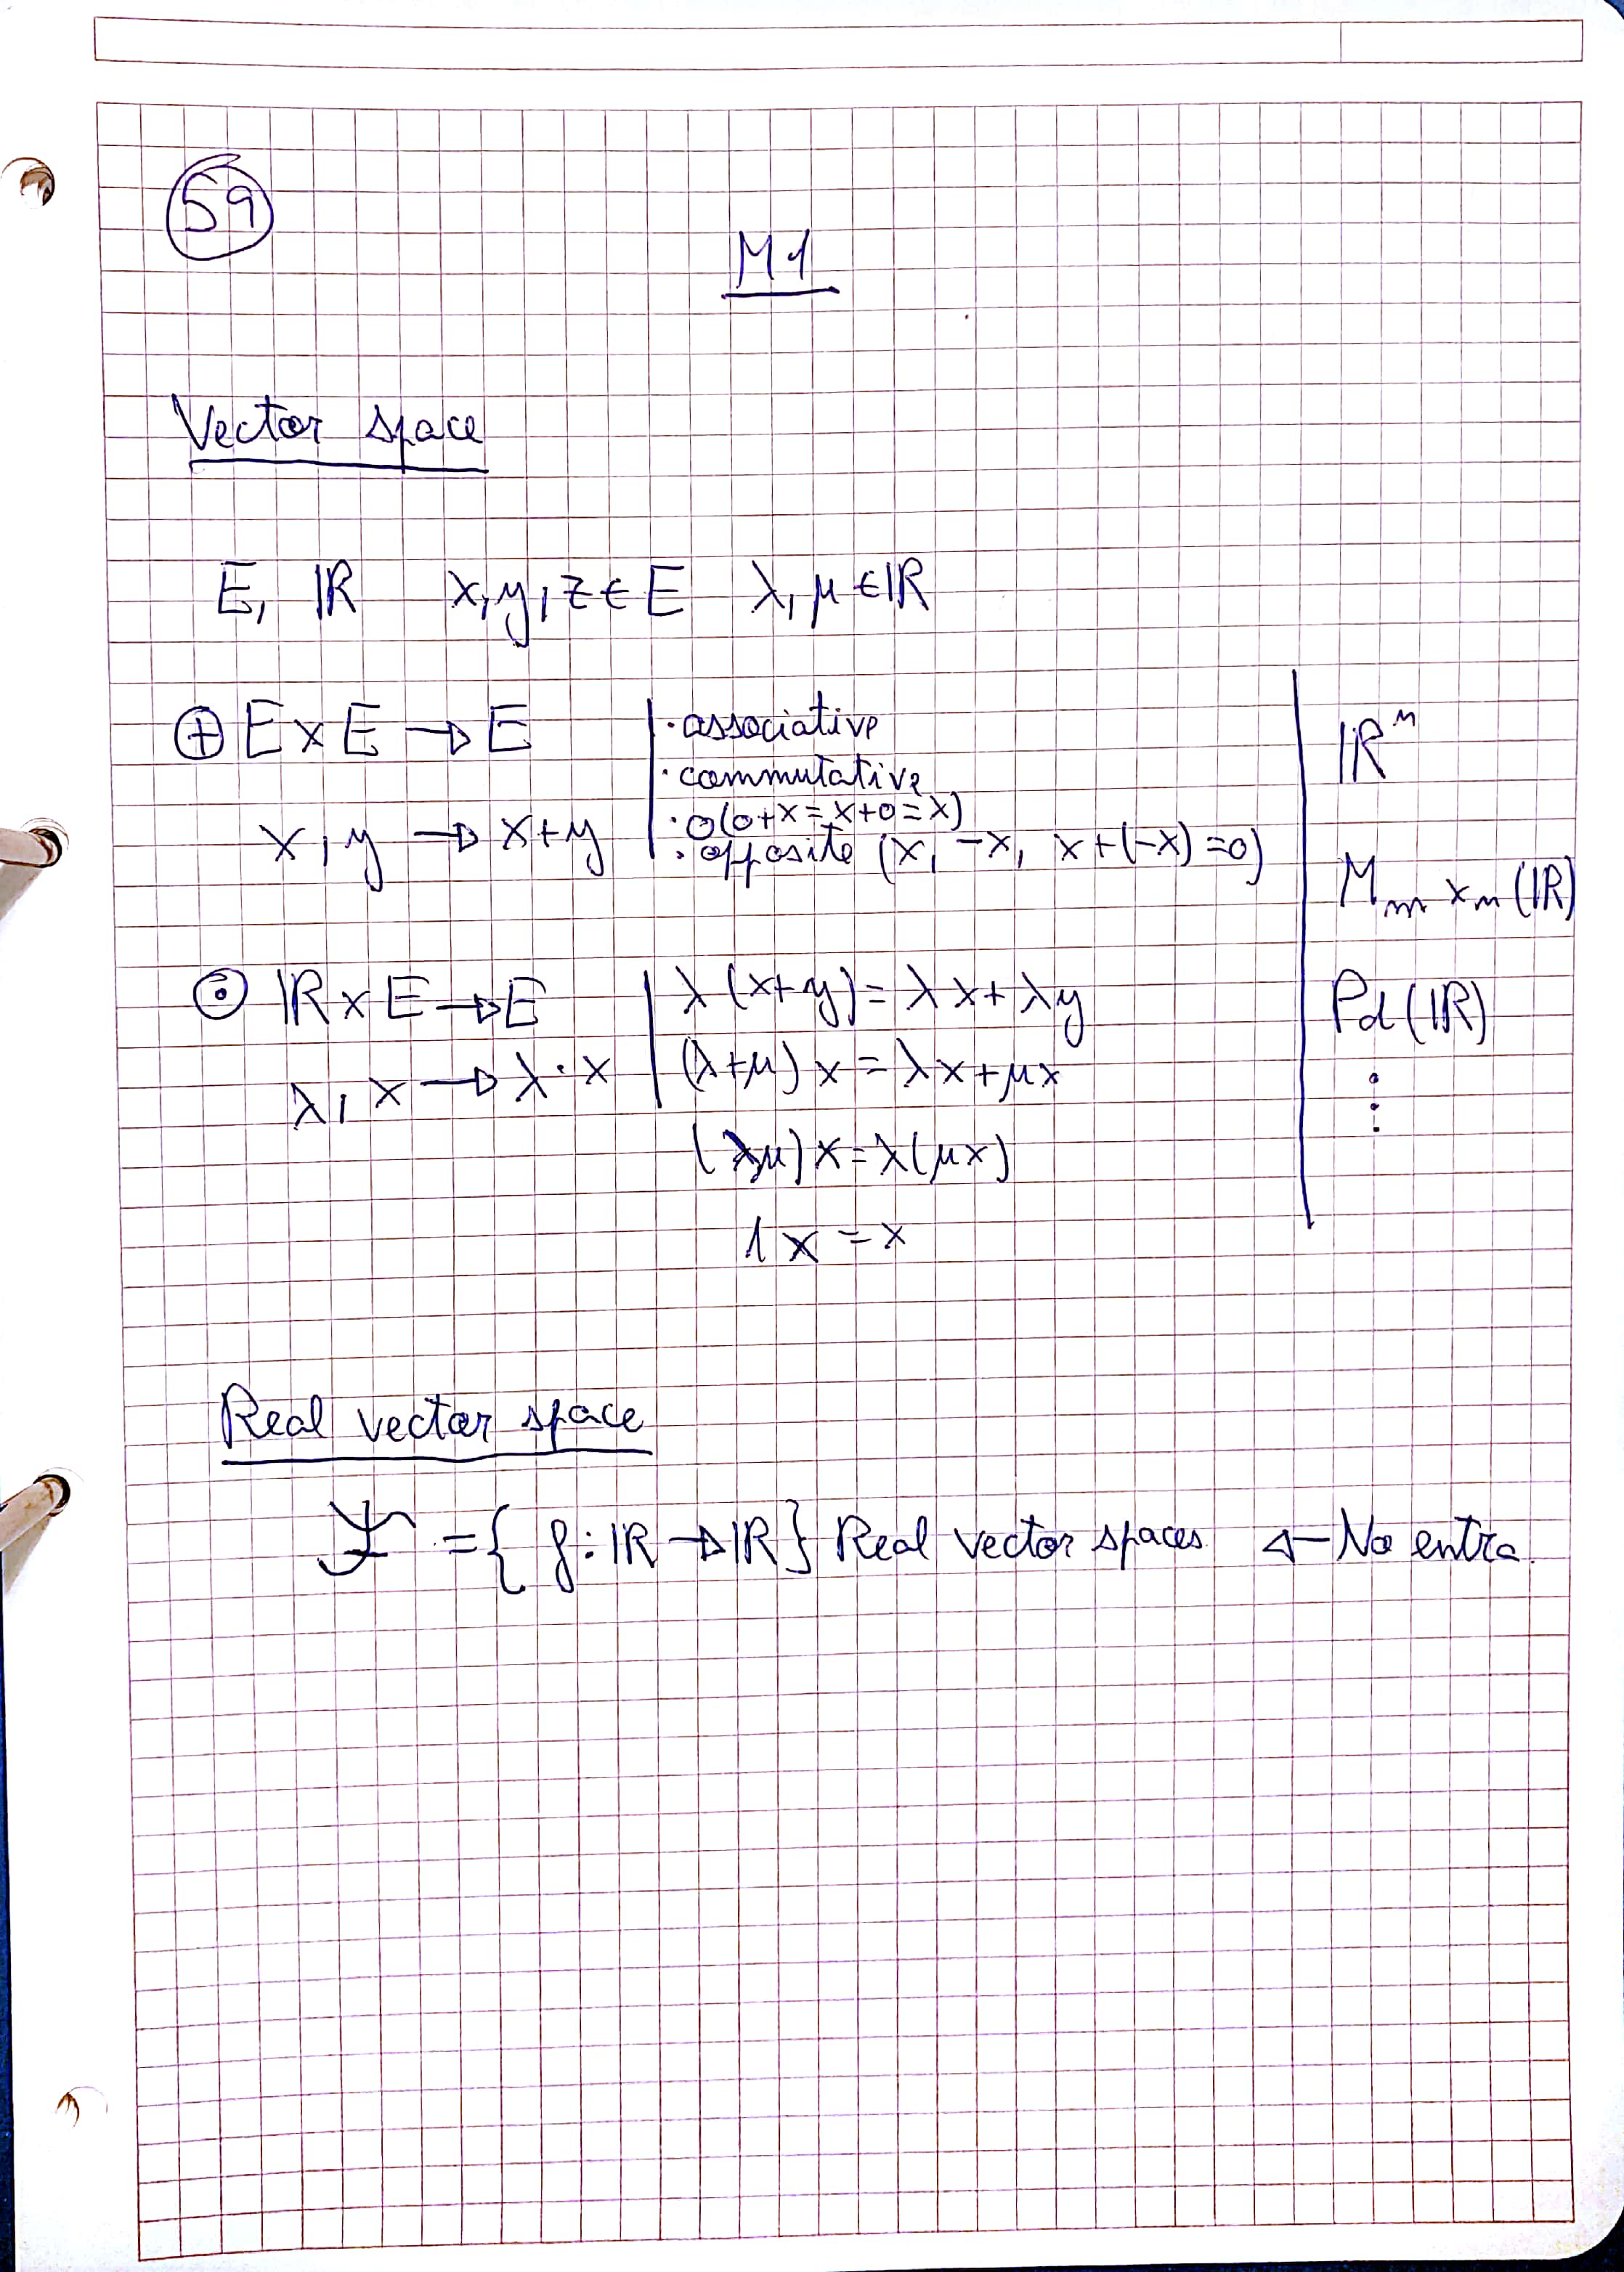 59
M1
Vector space
E, ℝ x, y, z ∈ E λ, μ ∈ ℝ
⊕ E × E → E
x, y → x+y
· associative
· commutative
· 0 (0+x = x+0 = x)
· opposite (x, -x, x+(-x) = 0)
⊙ ℝ × E → E
λ, x → λ · x
λ(x+y) = λx + λy
(λ+μ) x = λx + μx
(λμ) x = λ(μx)
1x = x
ℝⁿ
M m × n (ℝ)
Pd (ℝ)
⋮
Real vector space
ℱ = { f : ℝ → ℝ } Real vector spaces ← No entra.